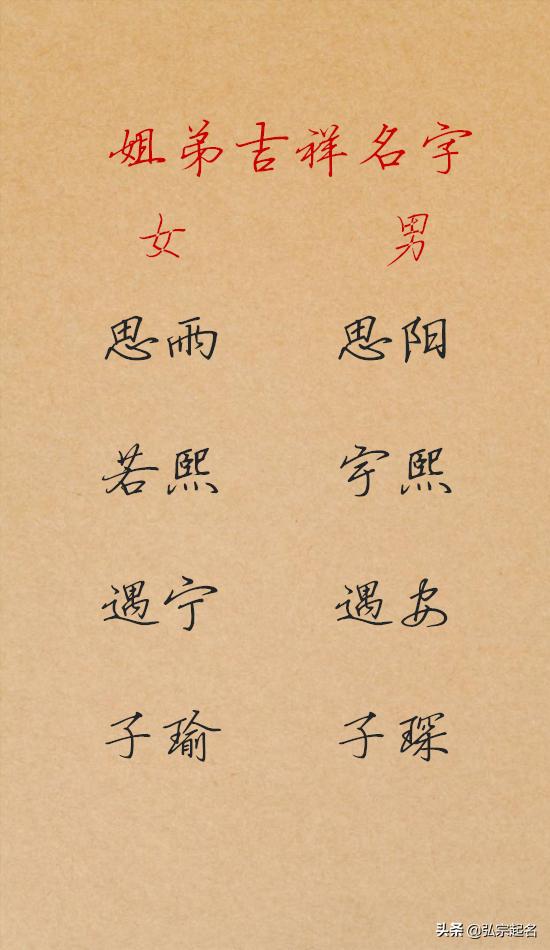 姐弟吉祥名字
女 男
思雨 思阳
若熙 宇熙
遇宁 遇安
子瑜 子琛
头条 @弘宗起名